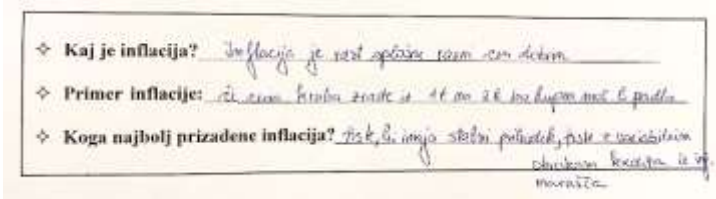 Kaj je inflacija? Inflacija je rast splošne ravni cen dobrin
Primer inflacije: če cena kruha zraste iz 1€ na 2€ bo kupna moč padla
Koga najbolj prizadene inflacija? tiste, ki imajo stalni prihodek, tiste z variabilnim
obrestno kredita